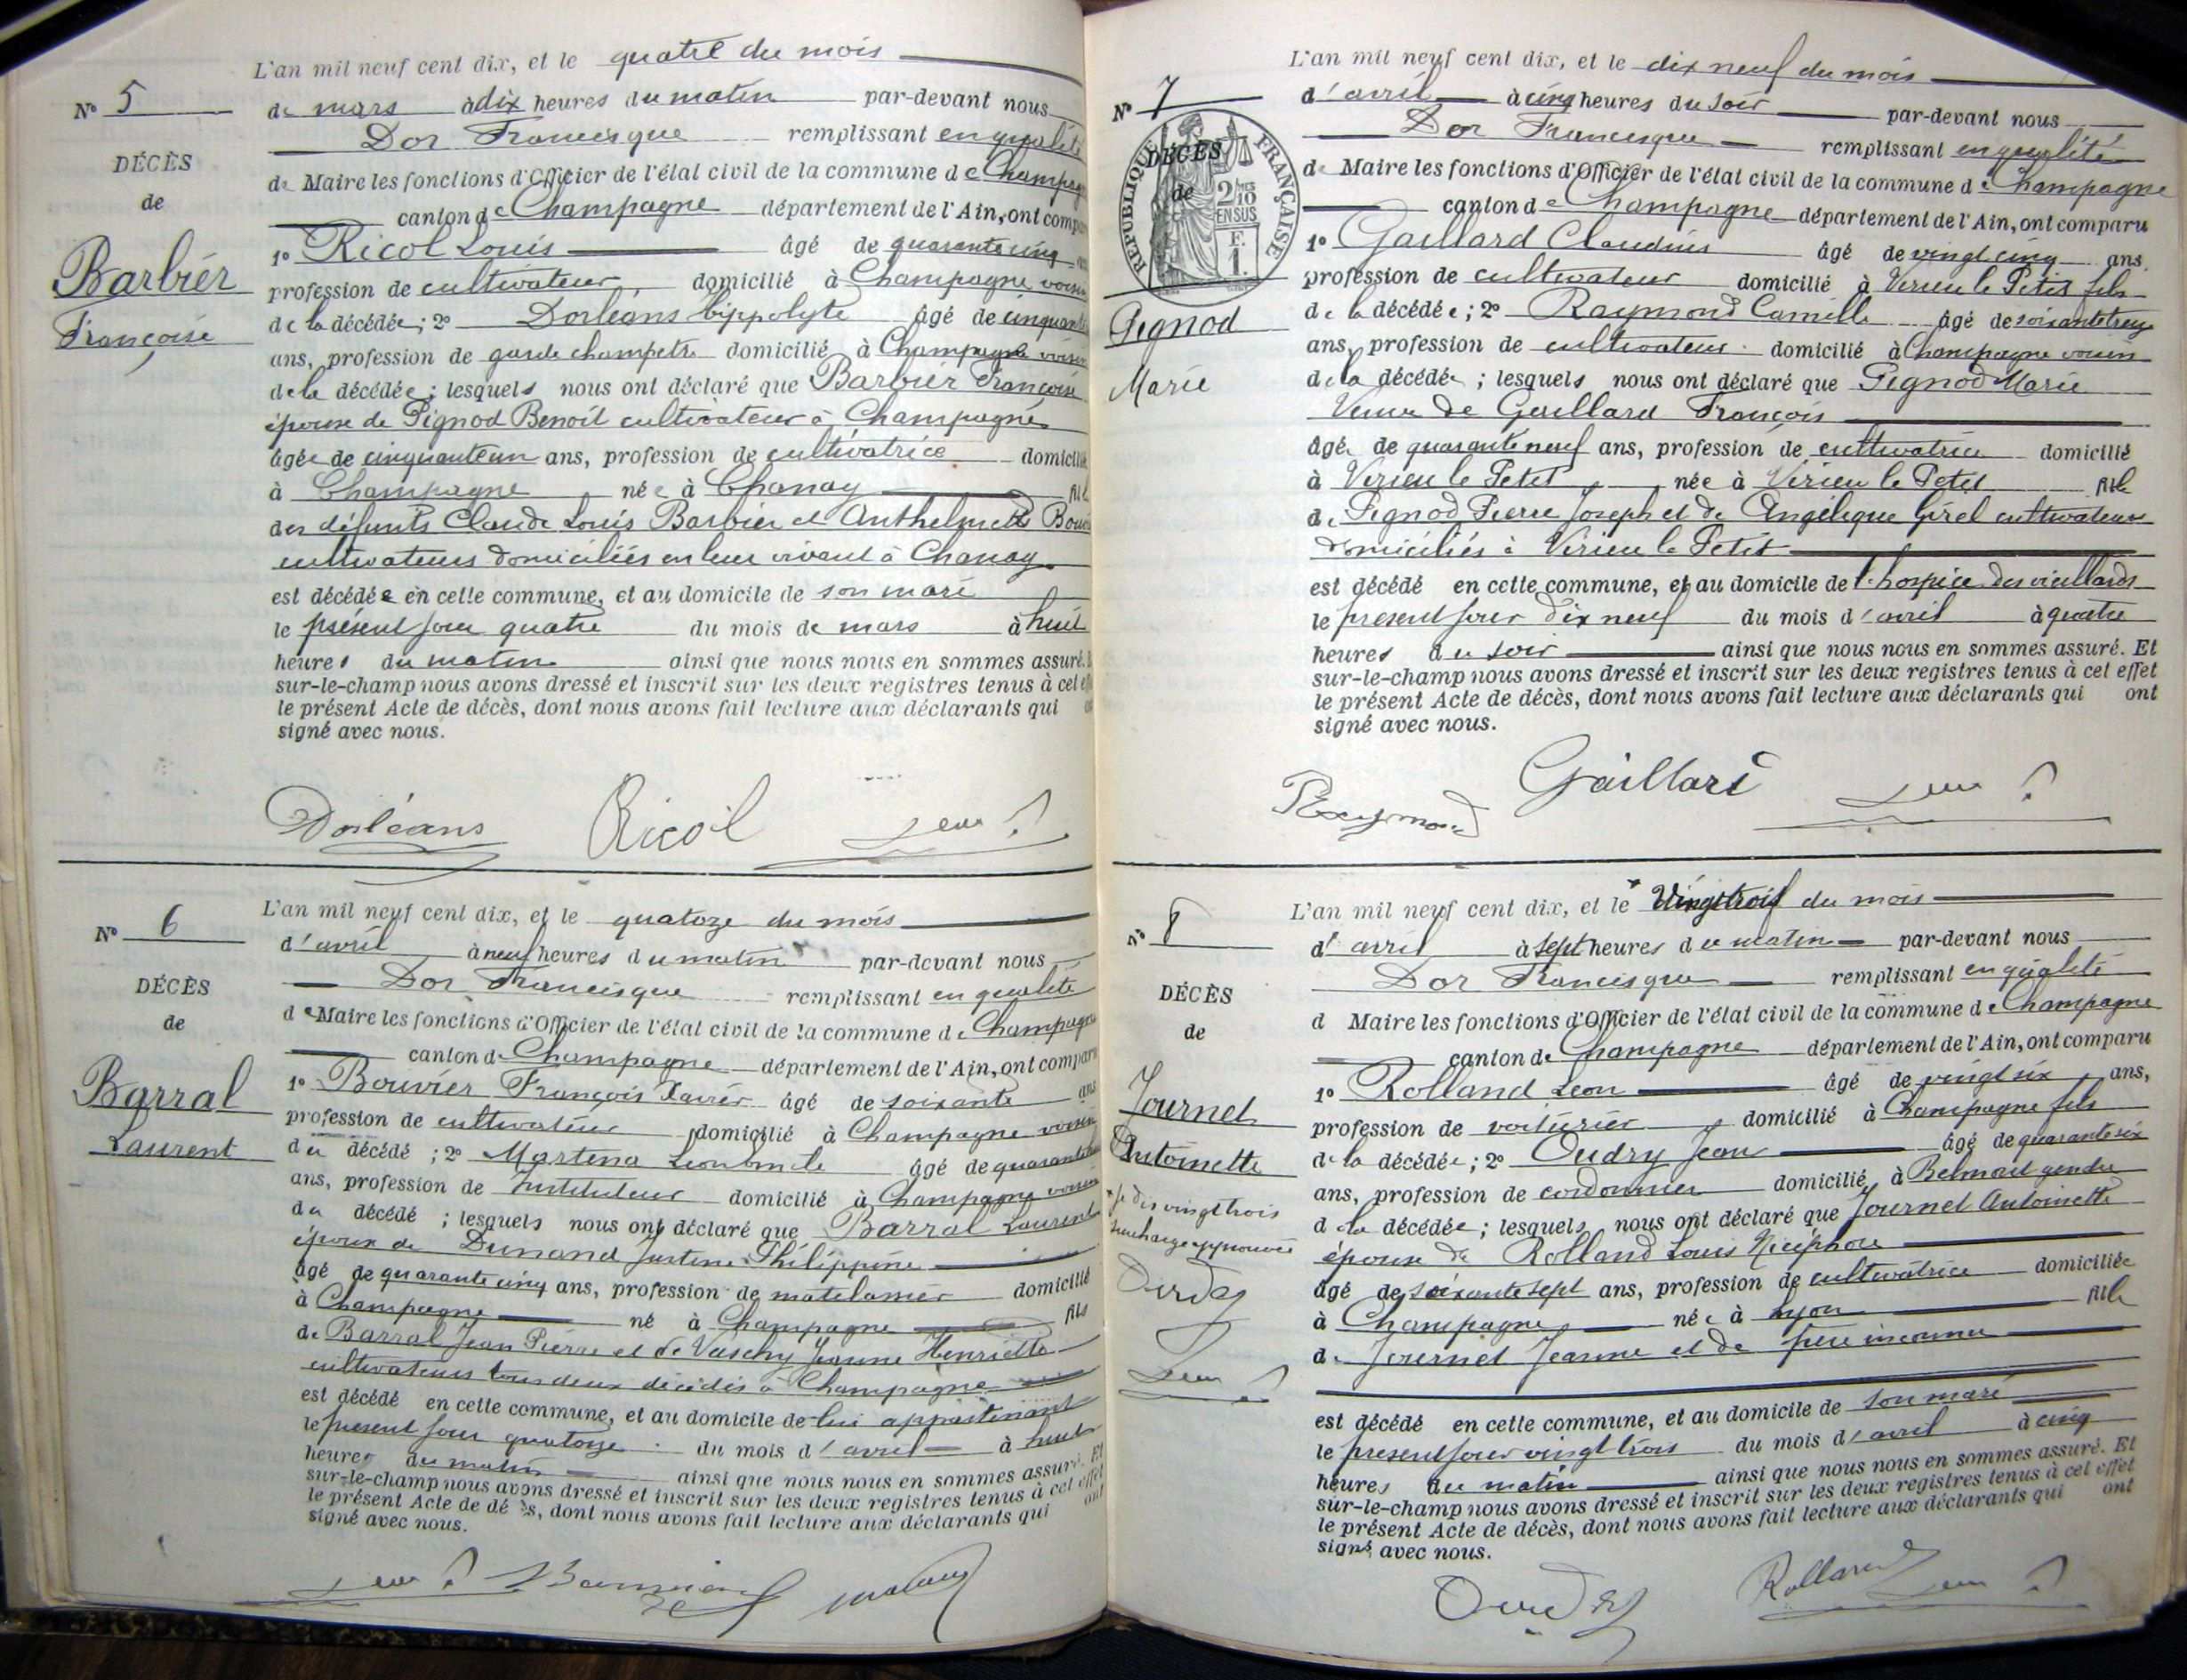 L'an mil neuf cent dix, et le quatre du mois
N° 5
de mars à dix heures du matin par-devant nous
Dor Francisque remplissant en qualité
DÉCÈS
de Maire les fonctions d'Officier de l'état civil de la commune de Champagne
de
canton de Champagne département de l'Ain, ont comparu
1° Ricol Louis âgé de quarante cinq
Barbier
profession de cultivateur, domicilié à Champagne voisin
Françoise
de la décédée; 2° Dorléans Hippolyte âgé de cinquante
ans, profession de garde champetre domicilié à Champagne voisin
de la décédée; lesquels nous ont déclaré que Barbier Françoise
épouse de Pignod Benoît cultivateur à Champagne
âgée de cinquante un ans, profession de cultivatrice domicilié
à Champagne née à Chanay fille
des défunts Claude Louis Barbier et Anthelmette
cultivateurs domiciliés en leur vivant à Chanay
est décédée en cette commune, et au domicile de son mari
le présent jour quatre du mois de mars à huit
heures du matin ainsi que nous nous en sommes assuré.
sur-le-champ nous avons dressé et inscrit sur les deux registres tenus à cet effet
le présent Acte de décès, dont nous avons fait lecture aux déclarants qui
signé avec nous.
Dorléans Ricol
L'an mil neuf cent dix, et le quatoze du mois
N° 6
d'avril à neuf heures du matin par-devant nous
Dor Francisque remplissant en qualité
DÉCÈS
de Maire les fonctions d'Officier de l'état civil de la commune de Champagne
de
canton de Champagne département de l'Ain, ont comparu
1° Bouvier François Xavier âgé de soixante ans
Barral
profession de cultivateur domicilié à Champagne voisin
Laurent
du décédé; 2° Martena âgé de quarante
ans, profession de Instituteur domicilié à Champagne voisin
du décédé; lesquels nous ont déclaré que Barral Laurent
époux de Dunand Justine Philippine
âgé de quarante cinq ans, profession de matelassier domicilié
à Champagne né à Champagne fils
de Barral Jean Pierre et de Jeanne Henriette
cultivateurs tous deux décédés à Champagne
est décédé en cette commune, et au domicile de lui appartenant
le présent jour quatorze du mois d'avril à huit
heures du matin ainsi que nous nous en sommes assuré. Et
sur-le-champ nous avons dressé et inscrit sur les deux registres tenus à cet effet
le présent Acte de décès, dont nous avons fait lecture aux déclarants qui ont
signé avec nous.
L'an mil neuf cent dix, et le dix neuf du mois
N° 7
d'avril à cinq heures du soir par-devant nous
Dor Francisque remplissant en qualité
DÉCÈS
de
RÉPUBLIQUE FRANÇAISE
2/10 EN SUS
F. 1.
de Maire les fonctions d'Officier de l'état civil de la commune de Champagne
canton de Champagne département de l'Ain, ont comparu
1° Gaillard Claudius âgé de vingt cinq ans,
profession de cultivateur domicilié à Virieu le Petit fils
Pignod
de la décédée; 2° Raymond Camille âgé de soixante treize
ans, profession de cultivateur domicilié à Champagne voisin
Marie
de la décédée; lesquels nous ont déclaré que Pignod Marie
Veuve de Gaillard François
âgé de quarante neuf ans, profession de cultivatrice domicilié
à Virieu le Petit, née à Virieu le Petit fille
de Pignod Pierre Joseph et de Angélique Girel cultivateurs
domiciliés à Virieu le Petit
est décédé en cette commune, et au domicile de l'hospice des vieillards
le présent jour dix neuf du mois d'avril à quatre
heures du soir ainsi que nous nous en sommes assuré. Et
sur-le-champ nous avons dressé et inscrit sur les deux registres tenus à cet effet
le présent Acte de décès, dont nous avons fait lecture aux déclarants qui ont
signé avec nous.
Raymond Gaillard
L'an mil neuf cent dix, et le * Vingt trois du mois
N° 8
d'avril à sept heures du matin par-devant nous
Dor Francisque remplissant en qualité
DÉCÈS
d Maire les fonctions d'Officier de l'état civil de la commune de Champagne
de
canton de Champagne département de l'Ain, ont comparu
1° Rolland Léon âgé de vingt six ans,
Journet
profession de voiturier domicilié à Champagne fils
Antoinette
de la décédée; 2° Oudry Jean âgé de quarante six
ans, profession de cordonnier domicilié à Belmont gendre
* Je dis vingt trois
surcharge approuvée
d la décédée; lesquels nous ont déclaré que Journet Antoinette
épouse de Rolland Louis Nicéphore
âgé de soixante sept ans, profession de cultivatrice domiciliée
à Champagne née à Lyon fille
de Journet Jeanne et de père inconnu
est décédé en cette commune, et au domicile de son mari
le présent jour vingt trois du mois d'avril à cinq
heures du matin ainsi que nous nous en sommes assuré. Et
sur-le-champ nous avons dressé et inscrit sur les deux registres tenus à cet effet
le présent Acte de décès, dont nous avons fait lecture aux déclarants qui ont
signé avec nous.
Rolland